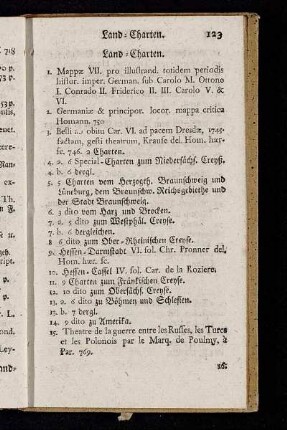 Land-Charten. 123
Land-Charten.
1. Mappæ VII. pro illustrand. totidem periodis
histor. imper. German. sub Carolo M. Ottono
I. Conrado II. Friderico II. III. Carolo V. &
VI.
2. Germaniæ & principor. locor. mappa critica
Homann. 750
3. Belli a. obitu Car. VI. ad pacem Dresdæ, 1745.
factam, gesti theatrum, Krause del. Hom. hær-
sc. 746. 2 Charten.
4. a. 6 Special-Charten zum Niedersächs. Creyse.
4. b. 6 dergl.
5. 5 Charten vom Herzogth. Braunschweig und
Lüneburg, dem Braunschw. Reichsgebiethe und
der Stadt Braunschweig.
6. 3 dito vom Harz und Brocken.
7. a. 5 dito zum Westphäl. Creyse.
7. b. 6 dergleichen.
8 6 dito zum Ober-Rheinischen Creyse.
9. Hessen-Darmstadt VI. fol. Chr. Pronner del.
Hom. hær. sc.
10. Hessen-Cassel IV. fol. Cær. de la Roziere.
11. 9 Charten zum Fränkischen Creyse.
12. 10 dito zum Obersächs. Creyse.
13. a. 6 dito zu Böhmen und Schlesien.
13. b. 7 dergl.
14. 9 dito zu Amerika.
15. Theatre de la guerre entre les Russes, les Turcs
et les Polonois par le Marq. de Poulmy, à
Par. 769.
16.